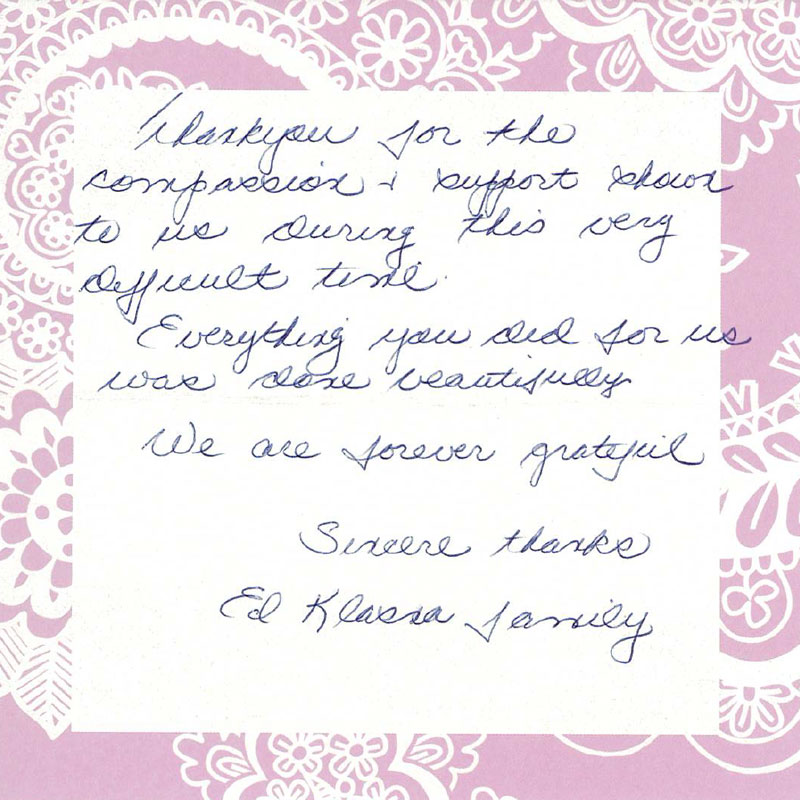 Thankyou for the
compassion & support shown
to us during this very
difficult time.
Everything you did for us
was done beautifully
We are forever grateful
Sincere thanks
Ed Klassa family